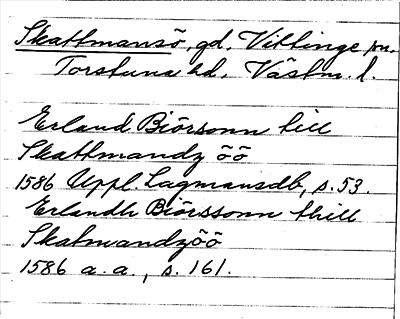 Skattmansö, gd. Vittinge sn.
Torstuna hd. Västm. l.
Erland Biörsonn till
Skathmandz öö
1586 Uppl. Lagmansdb, s. 53.
Erlandh Biörssonn thill
Skatmandzöö
1586 a. a., s. 161.